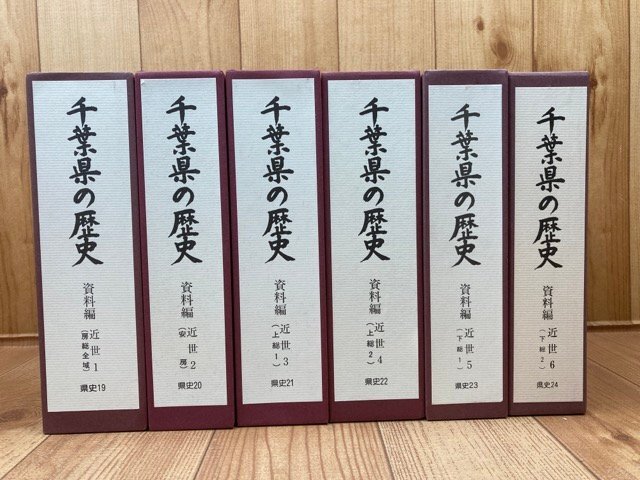 千葉県の歴史
資料編
近世1
(房総全域)
県史19
千葉県の歴史
資料編
近世2
(安房)
県史20
千葉県の歴史
資料編
近世3
(上総1)
県史21
千葉県の歴史
資料編
近世4
(上総2)
県史22
千葉県の歴史
資料編
近世5
(下総1)
県史23
千葉県の歴史
資料編
近世6
(下総2)
県史24